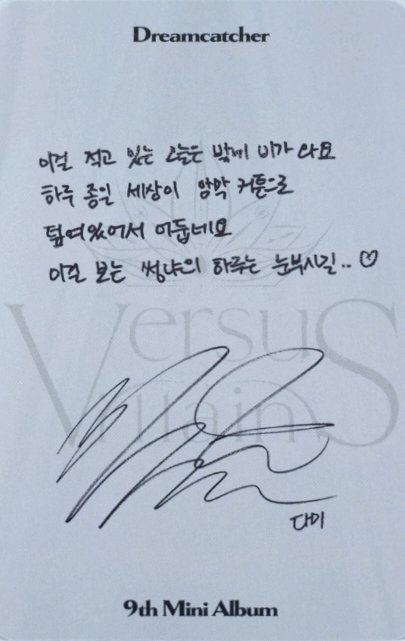 Dreamcatcher
이걸 적고 있는 오늘은 밖에 비가 와요
하루 종일 세상이 암막 커튼으로
덮여있어서 어둡네요
이걸 보는 썸냐의 하루는 눈부시길.. ♡
VersuS
Vitain
다미
9th Mini Album